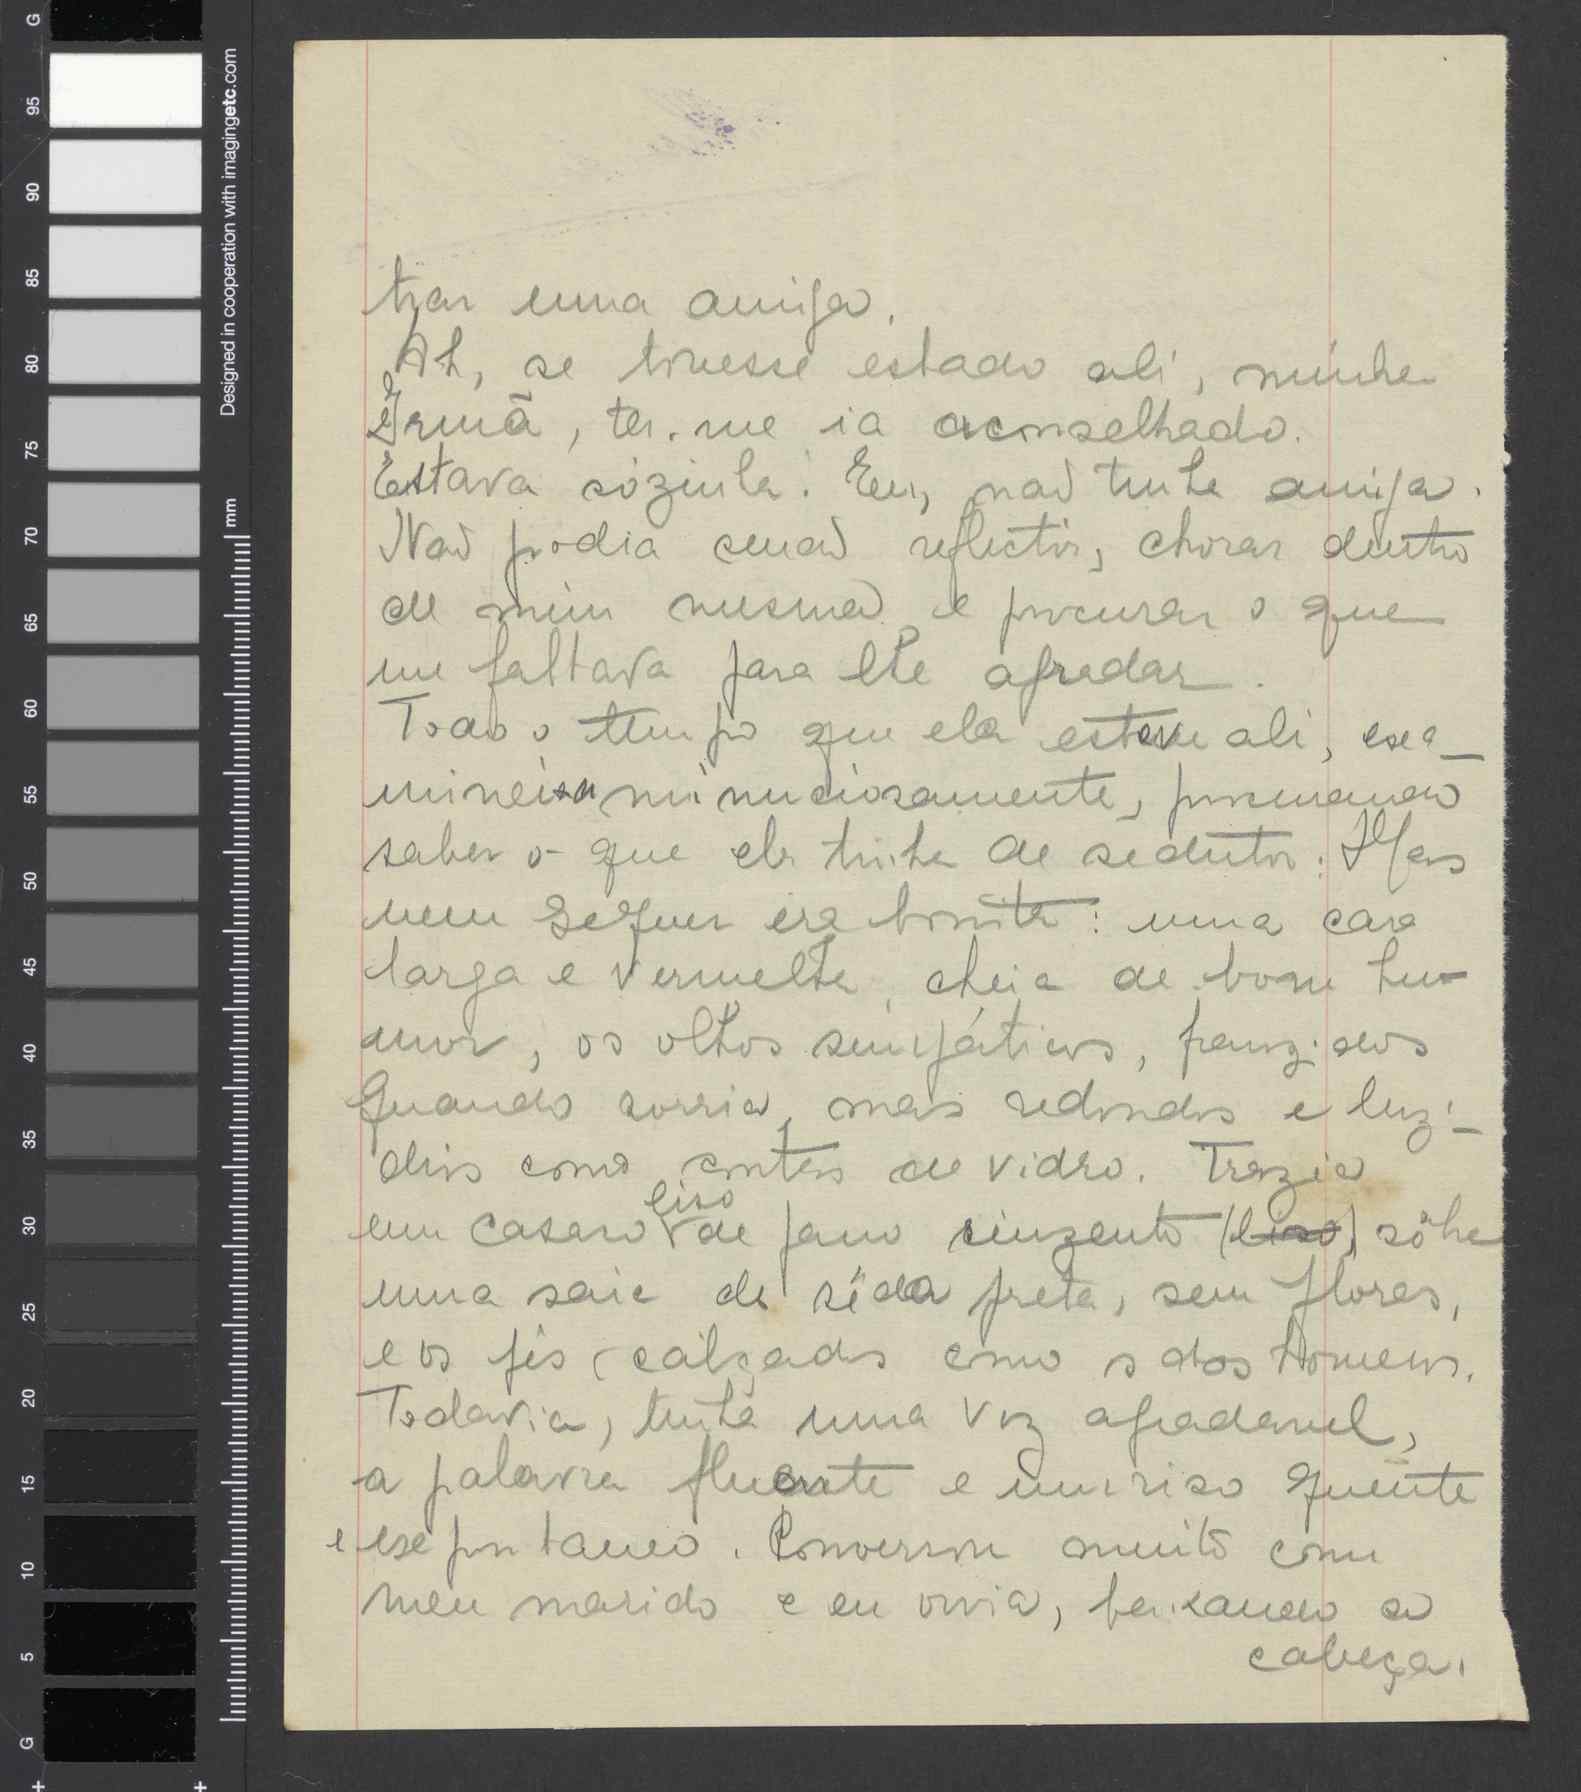 G
95
90
85
80
75
70
65
60
55
50
45
40
35
30
25
20
15
10
5
G
Designed in cooperation with imagingetc.com
mm
trar uma amiga.
Ah, se tivesse estado ali, minha
Irmã, ter-me ia aconselhado.
Estava sózinha! Eu, não tinha amiga.
Não podia senão reflectir, chorar dentro
de mim mesma e procurar o que
me faltava para lhe agradar.
Todo o tempo que ela esteve ali, exa-
minei-a minuciosamente, procurando
saber o que ela tinha de sedutor. Mas
nem sequer era bonita: uma cara
larga e vermelha, cheia de bom hu-
mor, os olhos simpáticos, franzidos
quando sorria, mas redondos e luzi-
dios como contas de vidro. Trazia
um casaco liso de pano cinzento (liso) sôbre
uma saia de sêda preta, sem flores,
e os pés calçados como os dos homens.
Todavia, tinha uma voz agradavel,
a palavra fluente e um riso quente
e expontaneo. Conversou muito com
meu marido e eu ouvia, baixando a
cabeça.